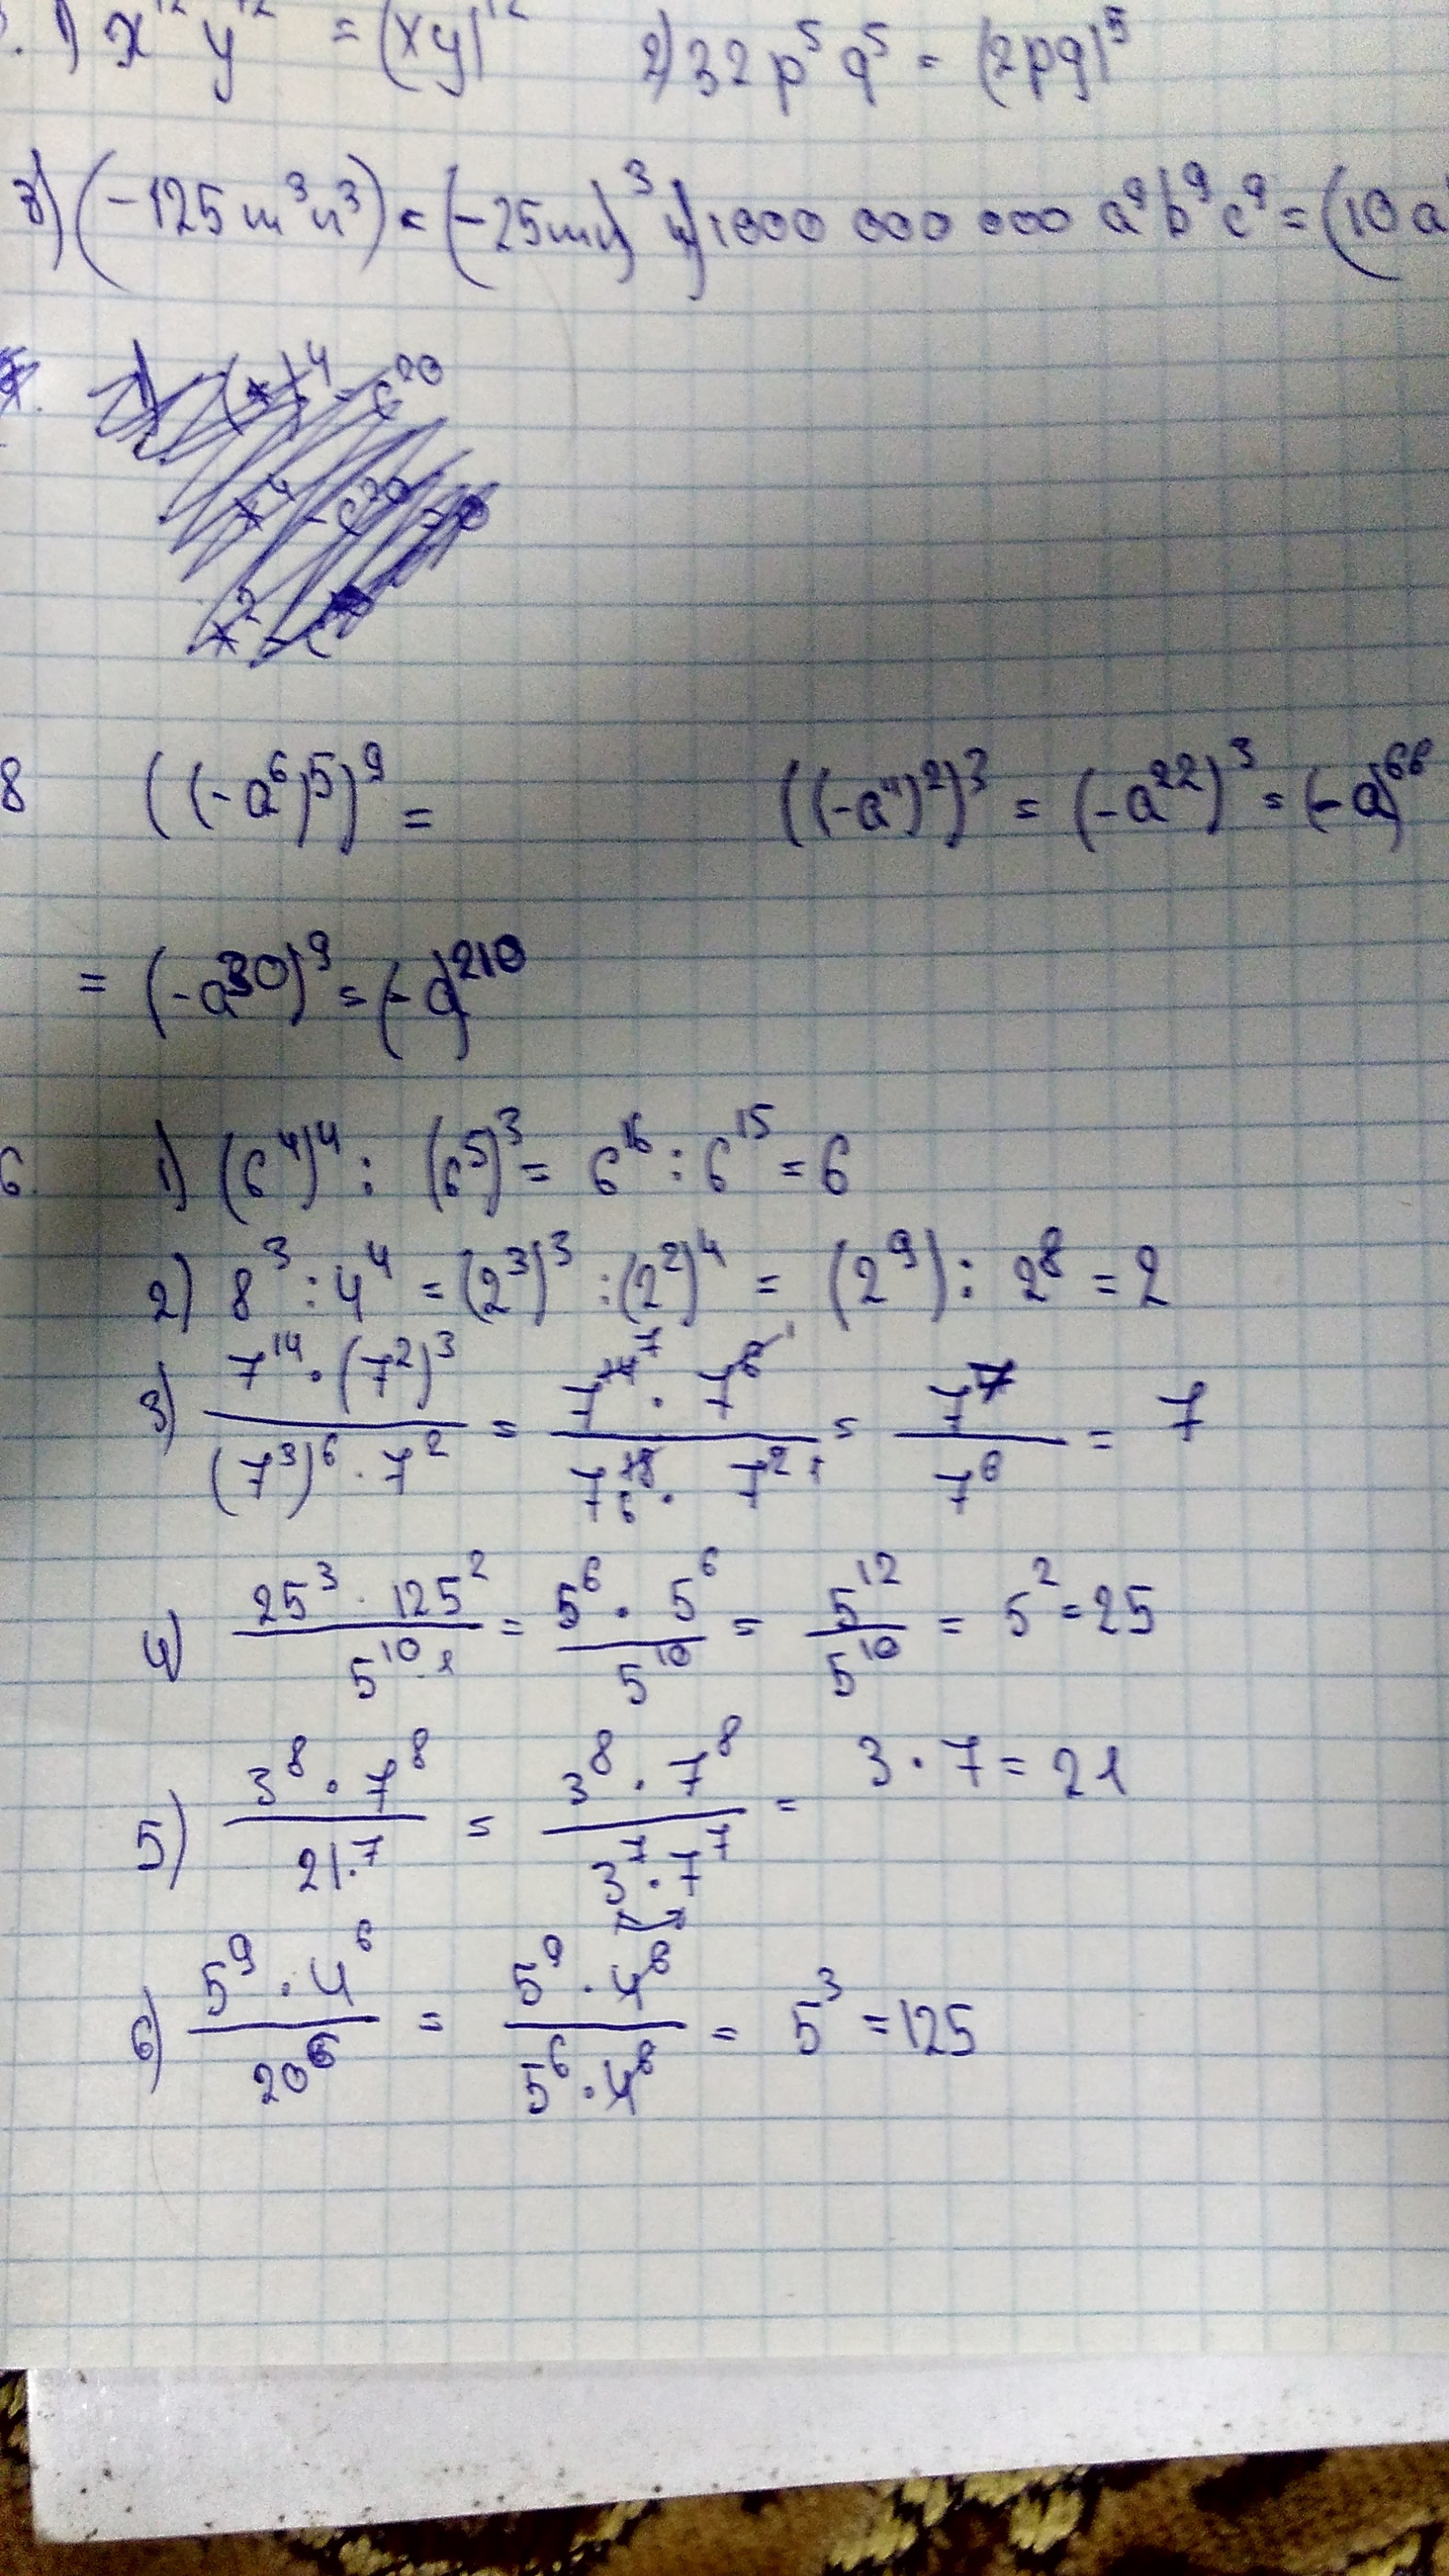 1) x¹² y¹² = (xy)¹² 2) 32 p⁵ q⁵ = (2pq)⁵
3) (-125m³n³) = (-25mn)³ 4) 1000 000 000 a⁹b⁹c⁹ = (10a
1) (*)⁴ - c²⁰
*⁴ - c²⁰
8 ((-a⁶)⁵)⁹ = ((-a¹¹)²)³ = (-a²²)³ = (-a)⁶⁶
= (-a³⁰)⁹ = (-a)²¹⁰
6. 1) (6⁴)⁴ : (6⁵)³ = 6¹⁶ : 6¹⁵ = 6
2) 8³ : 4⁴ = (2³)³ : (2²)⁴ = (2⁹) : 2⁸ = 2
3) 7¹⁴ · (7²)³ / (7³)⁶ · 7² = 7¹⁴ ⁷ · 7⁶ ¹ / 7¹⁸ ₆ · 7² ¹ = 7⁷ / 7⁶ = 7
4) 25³ · 125² / 5¹⁰ · 1 = 5⁶ · 5⁶ / 5¹⁰ = 5¹² / 5¹⁰ = 5² = 25
5) 3⁸ · 7⁸ / 21·⁷ = 3⁸ · 7⁸ / 3⁷ · 7⁷ = 3 · 7 = 21
6) 5⁹ · 4⁶ / 20⁶ = 5⁹ · 4⁶ / 5⁶ · 4⁶ = 5³ = 125